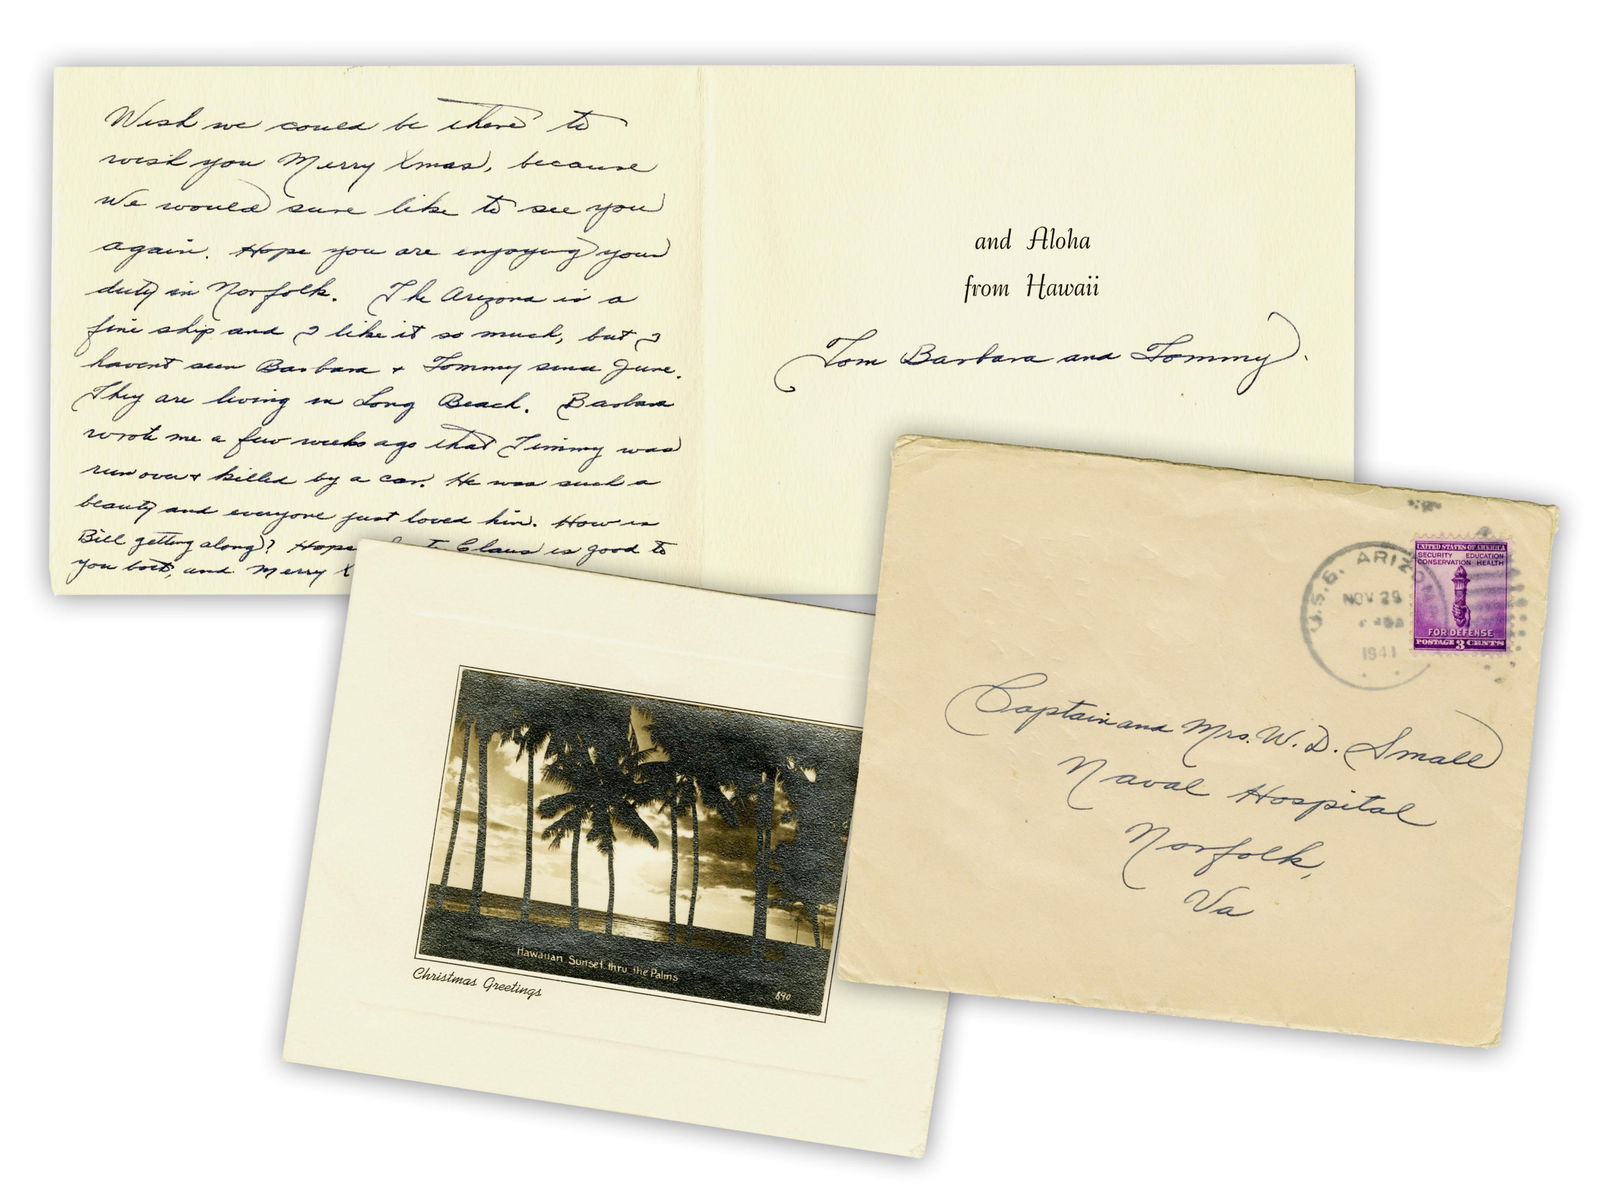 Wish we could be there to
wish you Merry Xmas, because
We would sure like to see you
again. Hope you are enjoying your
duty in Norfolk. The Arizona is a
fine ship and I like it so much, but I
havent seen Barbara + Tommy since June.
They are living in Long Beach. Barbara
wrote me a few weeks ago that Timmy was
run over + killed by a car. He was such a
beauty and everyone just loved him. How is
Bill getting along? Hope Claus is good to
you both, and Merry X
and Aloha
from Hawaii
Tom Barbara and Tommy.
Hawaiian Sunset thru the Palms
890
Christmas Greetings
U.S.S. ARIZONA
NOV 29
1941
UNITED STATES OF AMERICA
SECURITY EDUCATION
CONSERVATION HEALTH
FOR DEFENSE
POSTAGE 3 CENTS
Captain and Mrs. W. D. Small
Naval Hospital
Norfolk,
Va